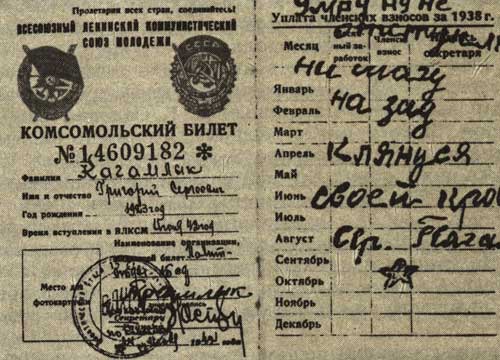 Пролетарии всех стран, соединяйтесь!
ВСЕСОЮЗНЫЙ ЛЕНИНСКИЙ КОММУНИСТИЧЕСКИЙ
СОЮЗ МОЛОДЕЖИ
КОМСОМОЛЬСКИЙ БИЛЕТ
№ 14609182 *
Фамилия Кагамлык
Имя и отчество Григорий Сергеевич
Год рождения 1923 год
Время вступления в ВЛКСМ
Наименование организации,
билет
Место для
фотокарточки
Секретарь
умру ну не
Уплата членских взносов за 1938 г.
Месяц
ный за-
работок
Членский
взнос
секретаря
ни шагу
Январь
Февраль на зад
Март
Апрель Клянуся
Май
Июнь своей кров
Июль
Август
Сентябрь
Октябрь
Ноябрь
Декабрь